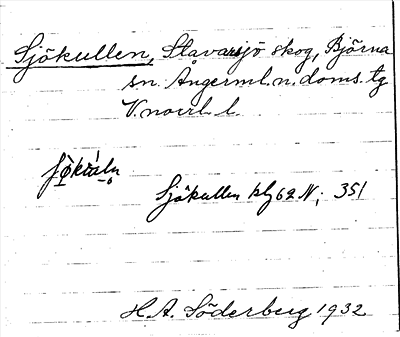 Sjökullen, Stavarsjö skog, Björna
sn. Ångerml. n. doms. tg
V. norrl. l.
Sjökullen hlj 62 N; 351
H. A. Söderberg 1932